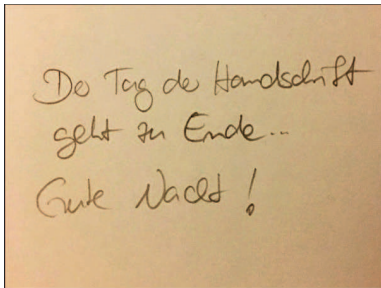 Der Tag der Handschrift
geht zu Ende...
Gute Nacht!